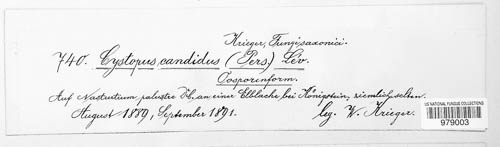 Krieger, Fungi saxonici.
740. Cystopus candidus (Pers.) Lév.
Oosporinform.
Auf Nasturtium palustre DC, an einer Elblache bei Königstein, ziemlich selten.
August 1889, September 1891. leg. W. Krieger.
US NATIONAL FUNGUS COLLECTIONS
979003